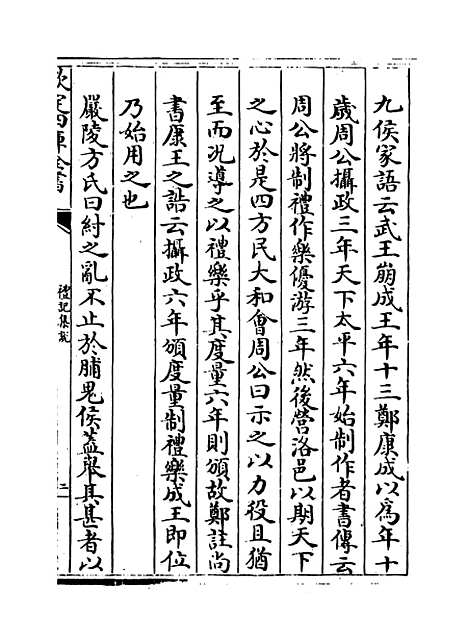 九侯家語云武王崩成王年十三鄭康成以為年十
歲周公攝政三年天下太平六年始制作者書傳云
周公將制禮作樂優游三年然後營洛邑以期天下
之心於是四方民大和會周公曰示之以力役且猶
至而况導之以禮樂乎其度量六年則頒故鄭註尚
書康王之誥云攝政六年頒度量制禮樂成王即位
乃始用之也
嚴陵方氏曰紂之亂不止於脯鬼侯蓋舉其甚者以
欽定四庫全書
禮記集說
二